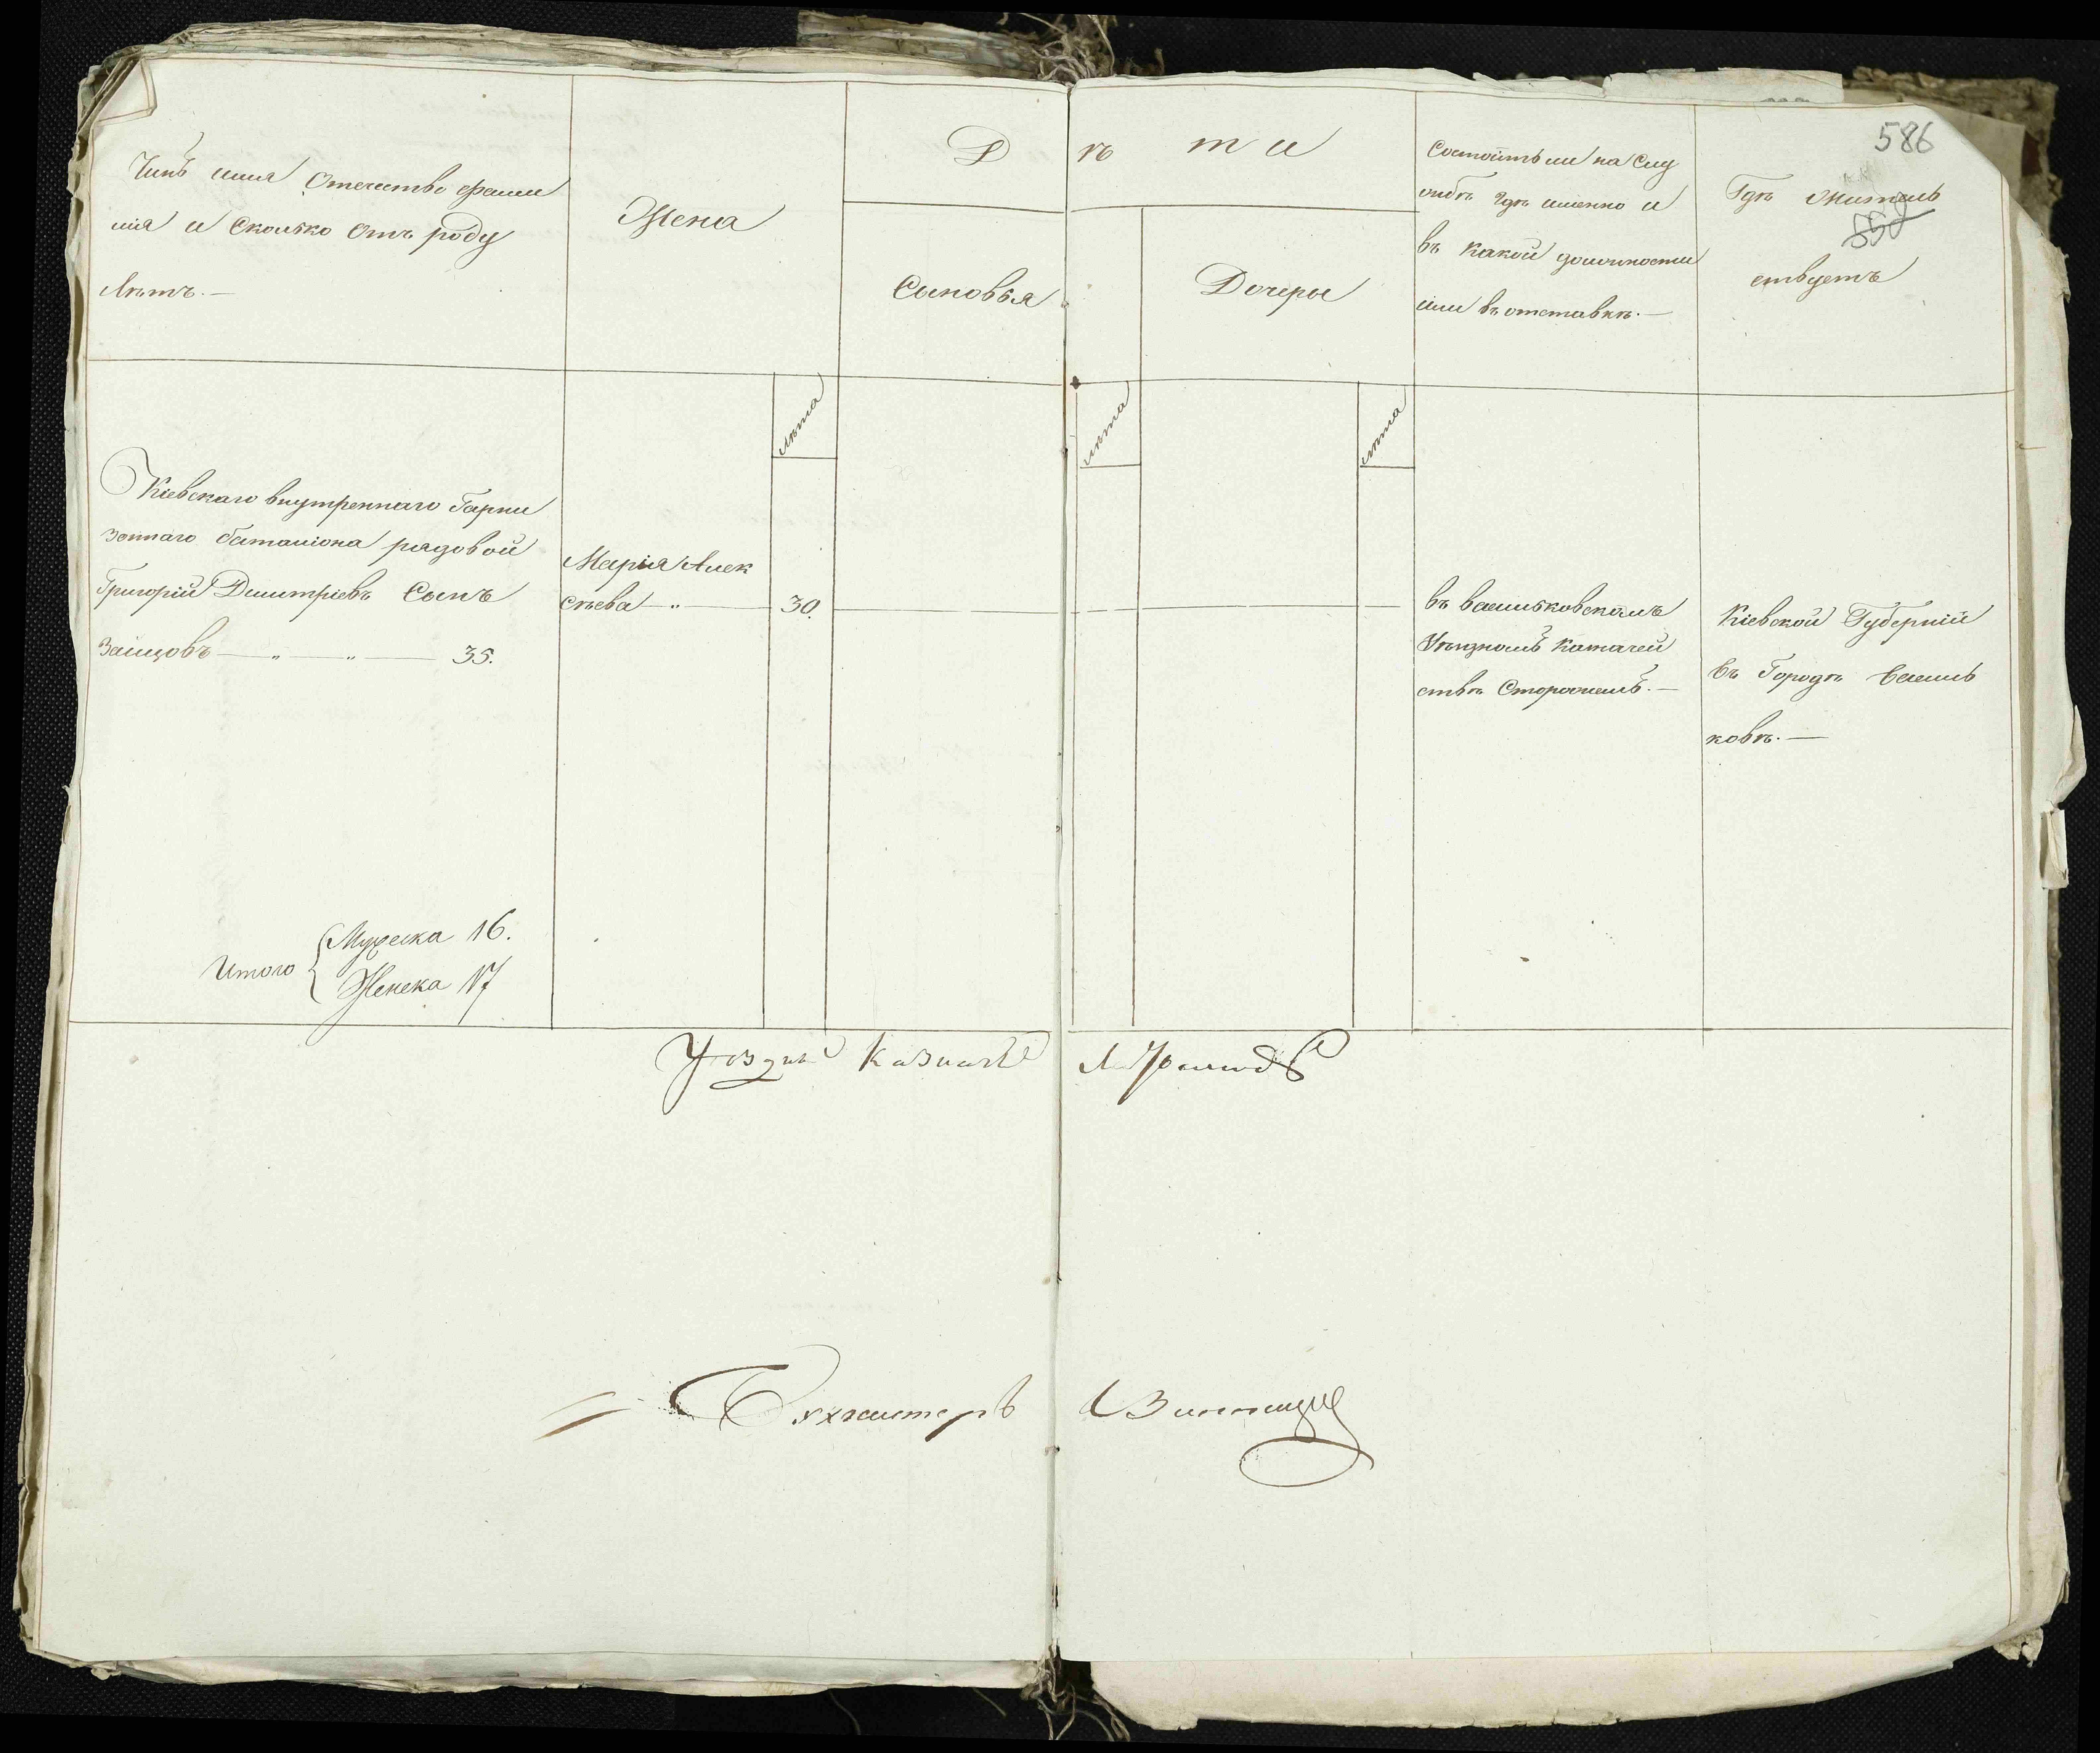 586
550
Чинъ имя Отечество фами
лія и Сколько Отъ роду
Лѣтъ.—
Жена
Дѣти
Сыновья
Дочеры
Состоитъ ли на Слу
жбѣ гдѣ именно и
въ какой должности
или въ отставкѣ.—
Гдѣ житель
ствуетъ
лѣта
лѣта
лѣта
Кіевскаго внутренняго Гарни
зоннаго баталіона рядовой
Григорій Дмитріевъ Сынъ
Зайцовъ — „ — „ — 35.
Марія Алек
сѣева — „ — 30.
въ васильковскомъ
Уѣздномъ Казначей
ствѣ Сторожемъ.—
Кіевской Губерніи
въ Городѣ Василь
ковѣ.—
Итого
Мужеска 16.
Женска 17
Уѣздный Казначей
Бухгалтеръ